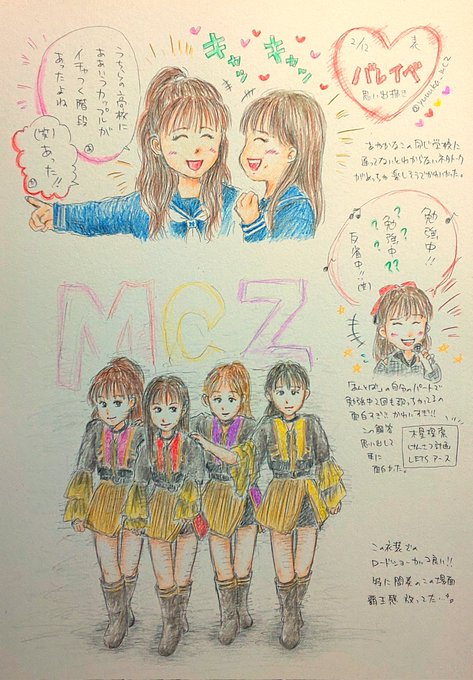 うちらの高校に
ああいうカップルが
イチャつく階段
あったよね
(笑)
あった!!
キャッ キャッ
2/12 表
バレイベ
思い出描き!!
同じ学校に
通ってないとわからないネタトーク
がめっちゃ楽しそうでかわいかった。
勉強中!!
勉強中??
反省中!!(笑)
MCZ
の自分のパートで
勉強中2回も歌っちゃってるの
面白すぎ!!かわいすぎ!!
この
思い出して
更に
面白かった。
木星探索
けんさつ計画
LET'S アース
この衣装での
ロードショーかんな良い!!
特に間奏のこの場面
覇王感 放ってた…